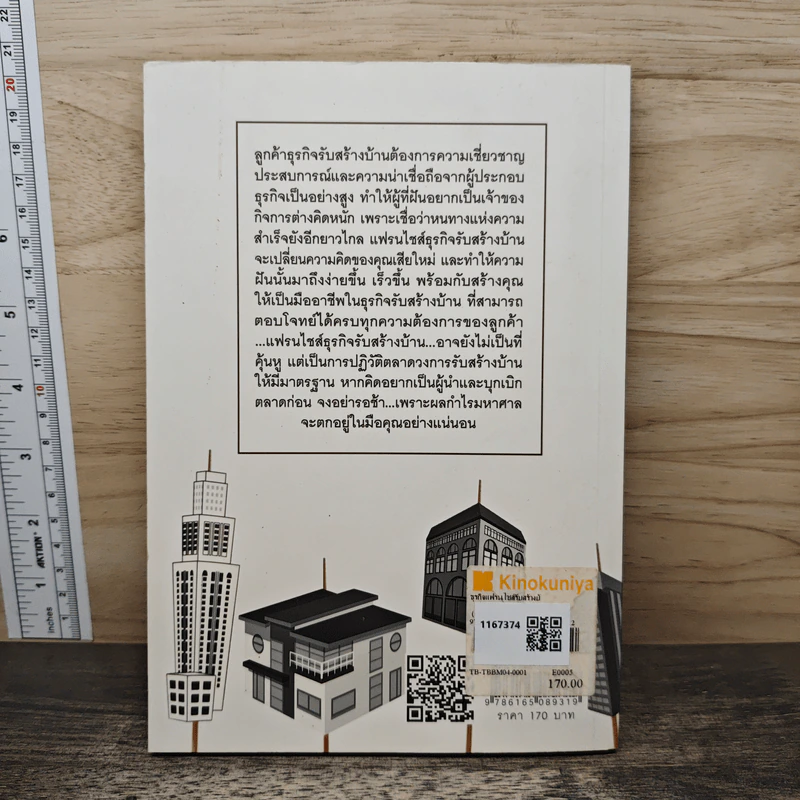 ลูกค้าธุรกิจรับสร้างบ้านต้องการความเชี่ยวชาญ
ประสบการณ์และความน่าเชื่อถือจากผู้ประกอบ
ธุรกิจเป็นอย่างสูง ทำให้ผู้ที่ฝันอยากเป็นเจ้าของ
กิจการต่างคิดหนัก เพราะเชื่อว่าหนทางแห่งความ
สำเร็จยังอีกยาวไกล แฟรนไชส์ธุรกิจรับสร้างบ้าน
จะเปลี่ยนความคิดของคุณเสียใหม่ และทำให้ความ
ฝันนั้นมาถึงง่ายขึ้น เร็วขึ้น พร้อมกับสร้างคุณ
ให้เป็นมืออาชีพในธุรกิจรับสร้างบ้าน ที่สามารถ
ตอบโจทย์ได้ครบทุกความต้องการของลูกค้า
...แฟรนไชส์ธุรกิจรับสร้างบ้าน...อาจยังไม่เป็นที่
คุ้นหู แต่เป็นการปฏิวัติตลาดวงการรับสร้างบ้าน
ให้มีมาตรฐาน หากคิดอยากเป็นผู้นำและบุกเบิก
ตลาดก่อน จงอย่ารอช้า...เพราะผลกำไรมหาศาล
จะตกอยู่ในมือคุณอย่างแน่นอน
Kinokuniya
1167374
TB-TBBM04-0001 E0005
170.00
9 786165 089319
ราคา 170 บาท
22
21
20
19
18
17
16
15
14
13
12
11
10
9
8
7
6
5
4
3
2
1
6
5
4
3
2
1
AKTION
inches